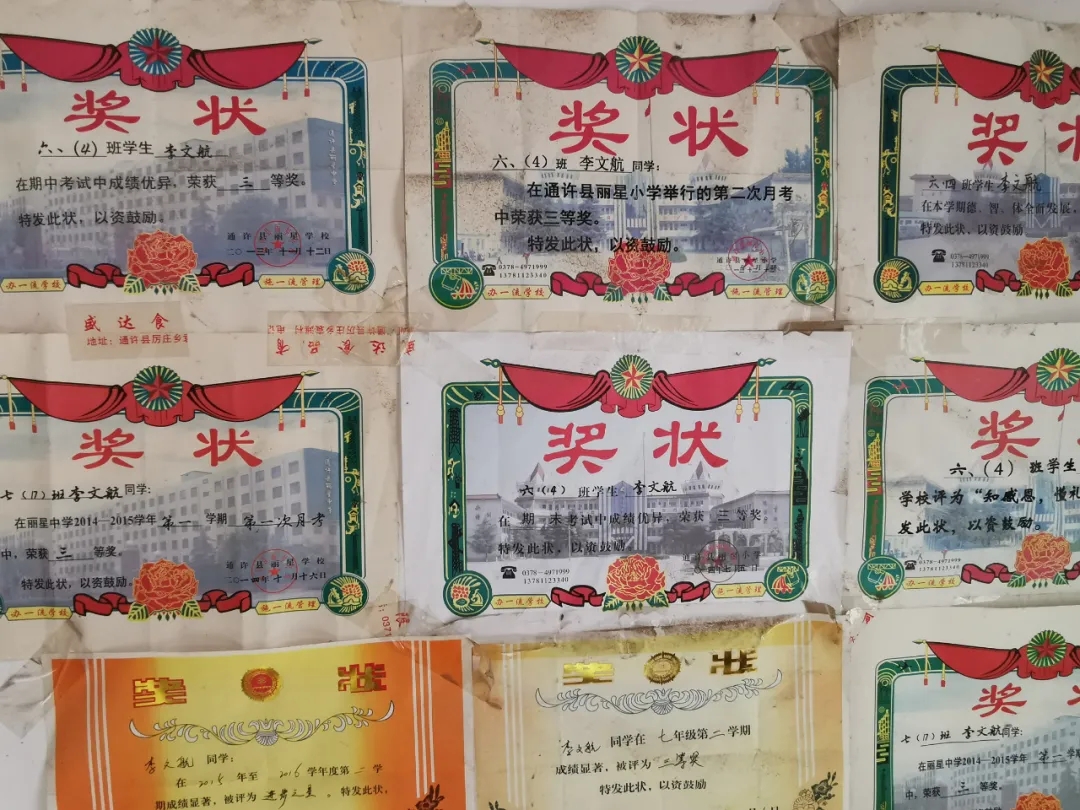 奖状
六、(4)班学生 李文航
在期中考试中成绩优异，荣获 三 等奖。
特发此状，以资鼓励。
通许县丽星学校
二〇一三年十一月十二日
办一流学校
施一流管理
奖状
六、(4)班 李文航 同学：
在通许县丽星小学举行的第二次月考
中荣获三等奖。
特发此状，以资鼓励。
0378-4971999
13781123340
办一流学校
施一流管理
奖
六四班学生 李文航
在本学期德、智、体全面发展，
特发此状，以资鼓励
0378-4971999
13781123340
办一流学校
盛达食
地址：通许县厉庄乡
盛达食品有
奖状
七(八)班 李文航 同学：
在丽星中学2014—2015学年 第一 学期 第一次月考
中，荣获 三 等奖。
特发此状，以资鼓励。
通许县丽星学校
二〇一四年十月十六日
办一流学校
施一流管理
奖状
六(4)班学生：李文航
在 期 末考试中成绩优异，荣获 三 等奖
特发此状，以资鼓励
0378-4971999
13781123340
办一流学校
施一流管理
奖状
六、(4) 班学生
学校评为“知感恩，懂礼
发此状，以资鼓励。
0378-4971999
13781123340
办一流学校
奖状
李文航 同学：
在 2015 年至 2016 学年度第 二 学
期成绩显著，被评为 进步之星。特发此状，
奖状
李文航 同学在 七年级第二学期
成绩显著，被评为 三等奖
特发此状，以资鼓励
奖
七(八)班 李文航同学：
在丽星中学2014—2015学年 第二 学期
中，荣获 三 等奖。